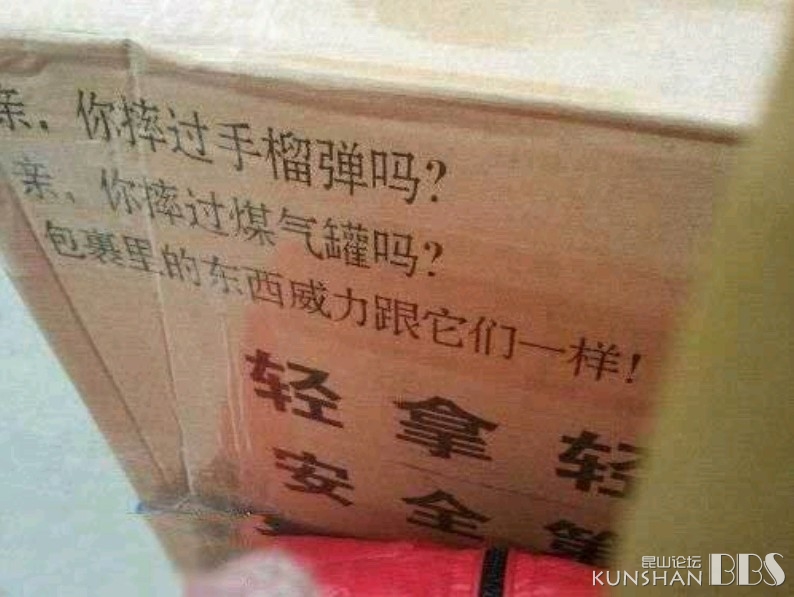 亲，你摔过手榴弹吗？
亲，你摔过煤气罐吗？
包裹里的东西威力跟它们一样！
轻拿轻
安全第
昆山论坛
KUNSHAN BBS